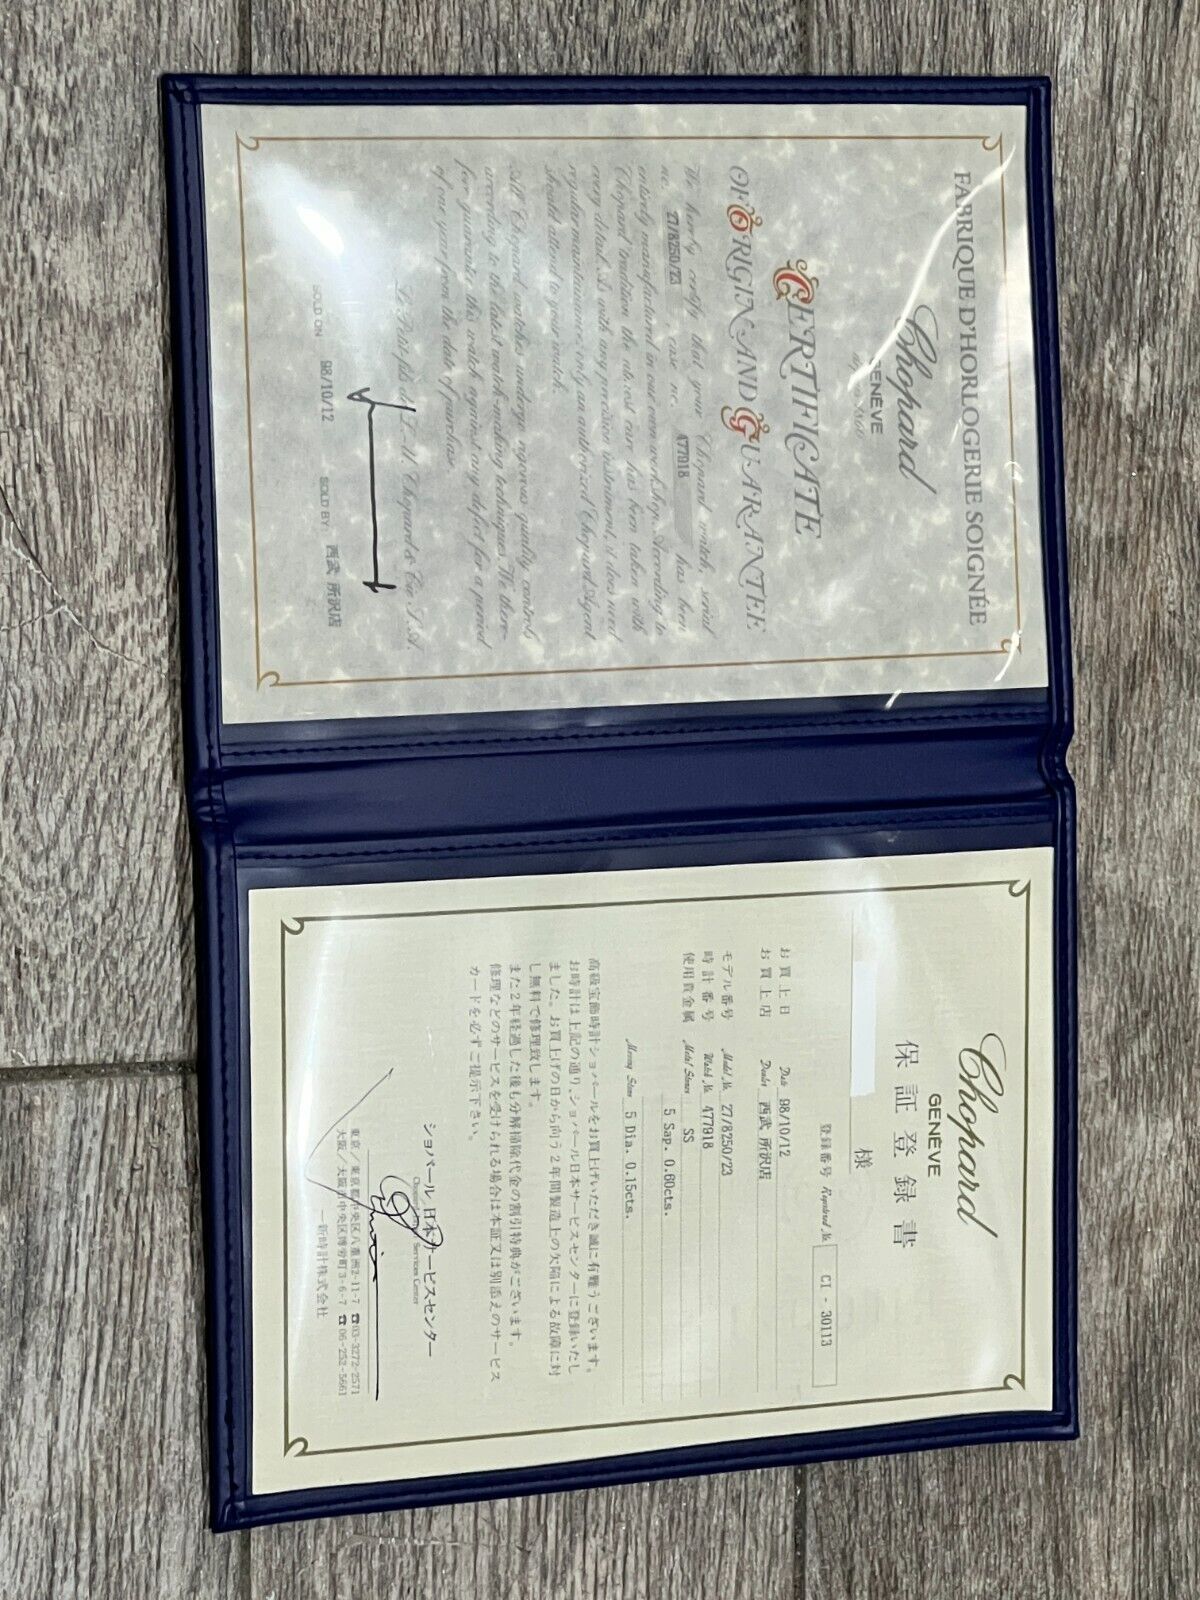 FABRIQUE D'HORLOGERIE SOIGNÉE
Chopard
GENÈVE
CERTIFICATE
OF ORIGIN AND GUARANTEE
We hereby certify that your Chopard watch, serial
no. 27/8250/23 case no. 477018 has been
entirely manufactured in our own workshop. According to
Chopard tradition the utmost care has been taken with
every detail. As with any precision instrument, it does need
regular maintainance; only an authorized Chopard Agent
should attend to your watch.
All Chopard watches undergo rigorous quality controls
according to the latest watch-making techniques. We there-
fore guarantee this watch against any defect for a period
of one year from the date of purchase.
Le Petit-fils de L.-U. Chopard & Cie S.A.
SOLD ON 98/10/12 SOLD BY 西武 所沢店
Chopard
GENÈVE
保証登録書
様
登録番号 Registered No. CI - 30113
お買上日 Date 98/10/12
お買上店 Dealer 西武 所沢店
モデル番号 Model No. 27/8250/23
時計番号 Watch No. 477918
使用貴金属 Metal Stones SS
5 Sap. 0.60cts.
Moving Stone 5 Dia. 0.15cts.
高級宝飾時計ショパールをお買上げいただき誠に有難うございます。
お時計は上記の通り、ショパール日本サービスセンターに登録いたし
ました。お買上げの日から向う2年間製造上の欠陥による故障に対
し無料で修理致します。
また2年経過した後も分解掃除代金の割引特典がございます。
修理などのサービスを受けられる場合は本証又は別添えのサービス
カードを必ずご提示下さい。
ショパール/日本サービスセンター
Services Center
東京/東京都中央区八重洲2-11-7 ☎03-3272-2571
大阪/大阪市中央区博労町3-6-7 ☎06-252-5661
一新時計株式会社